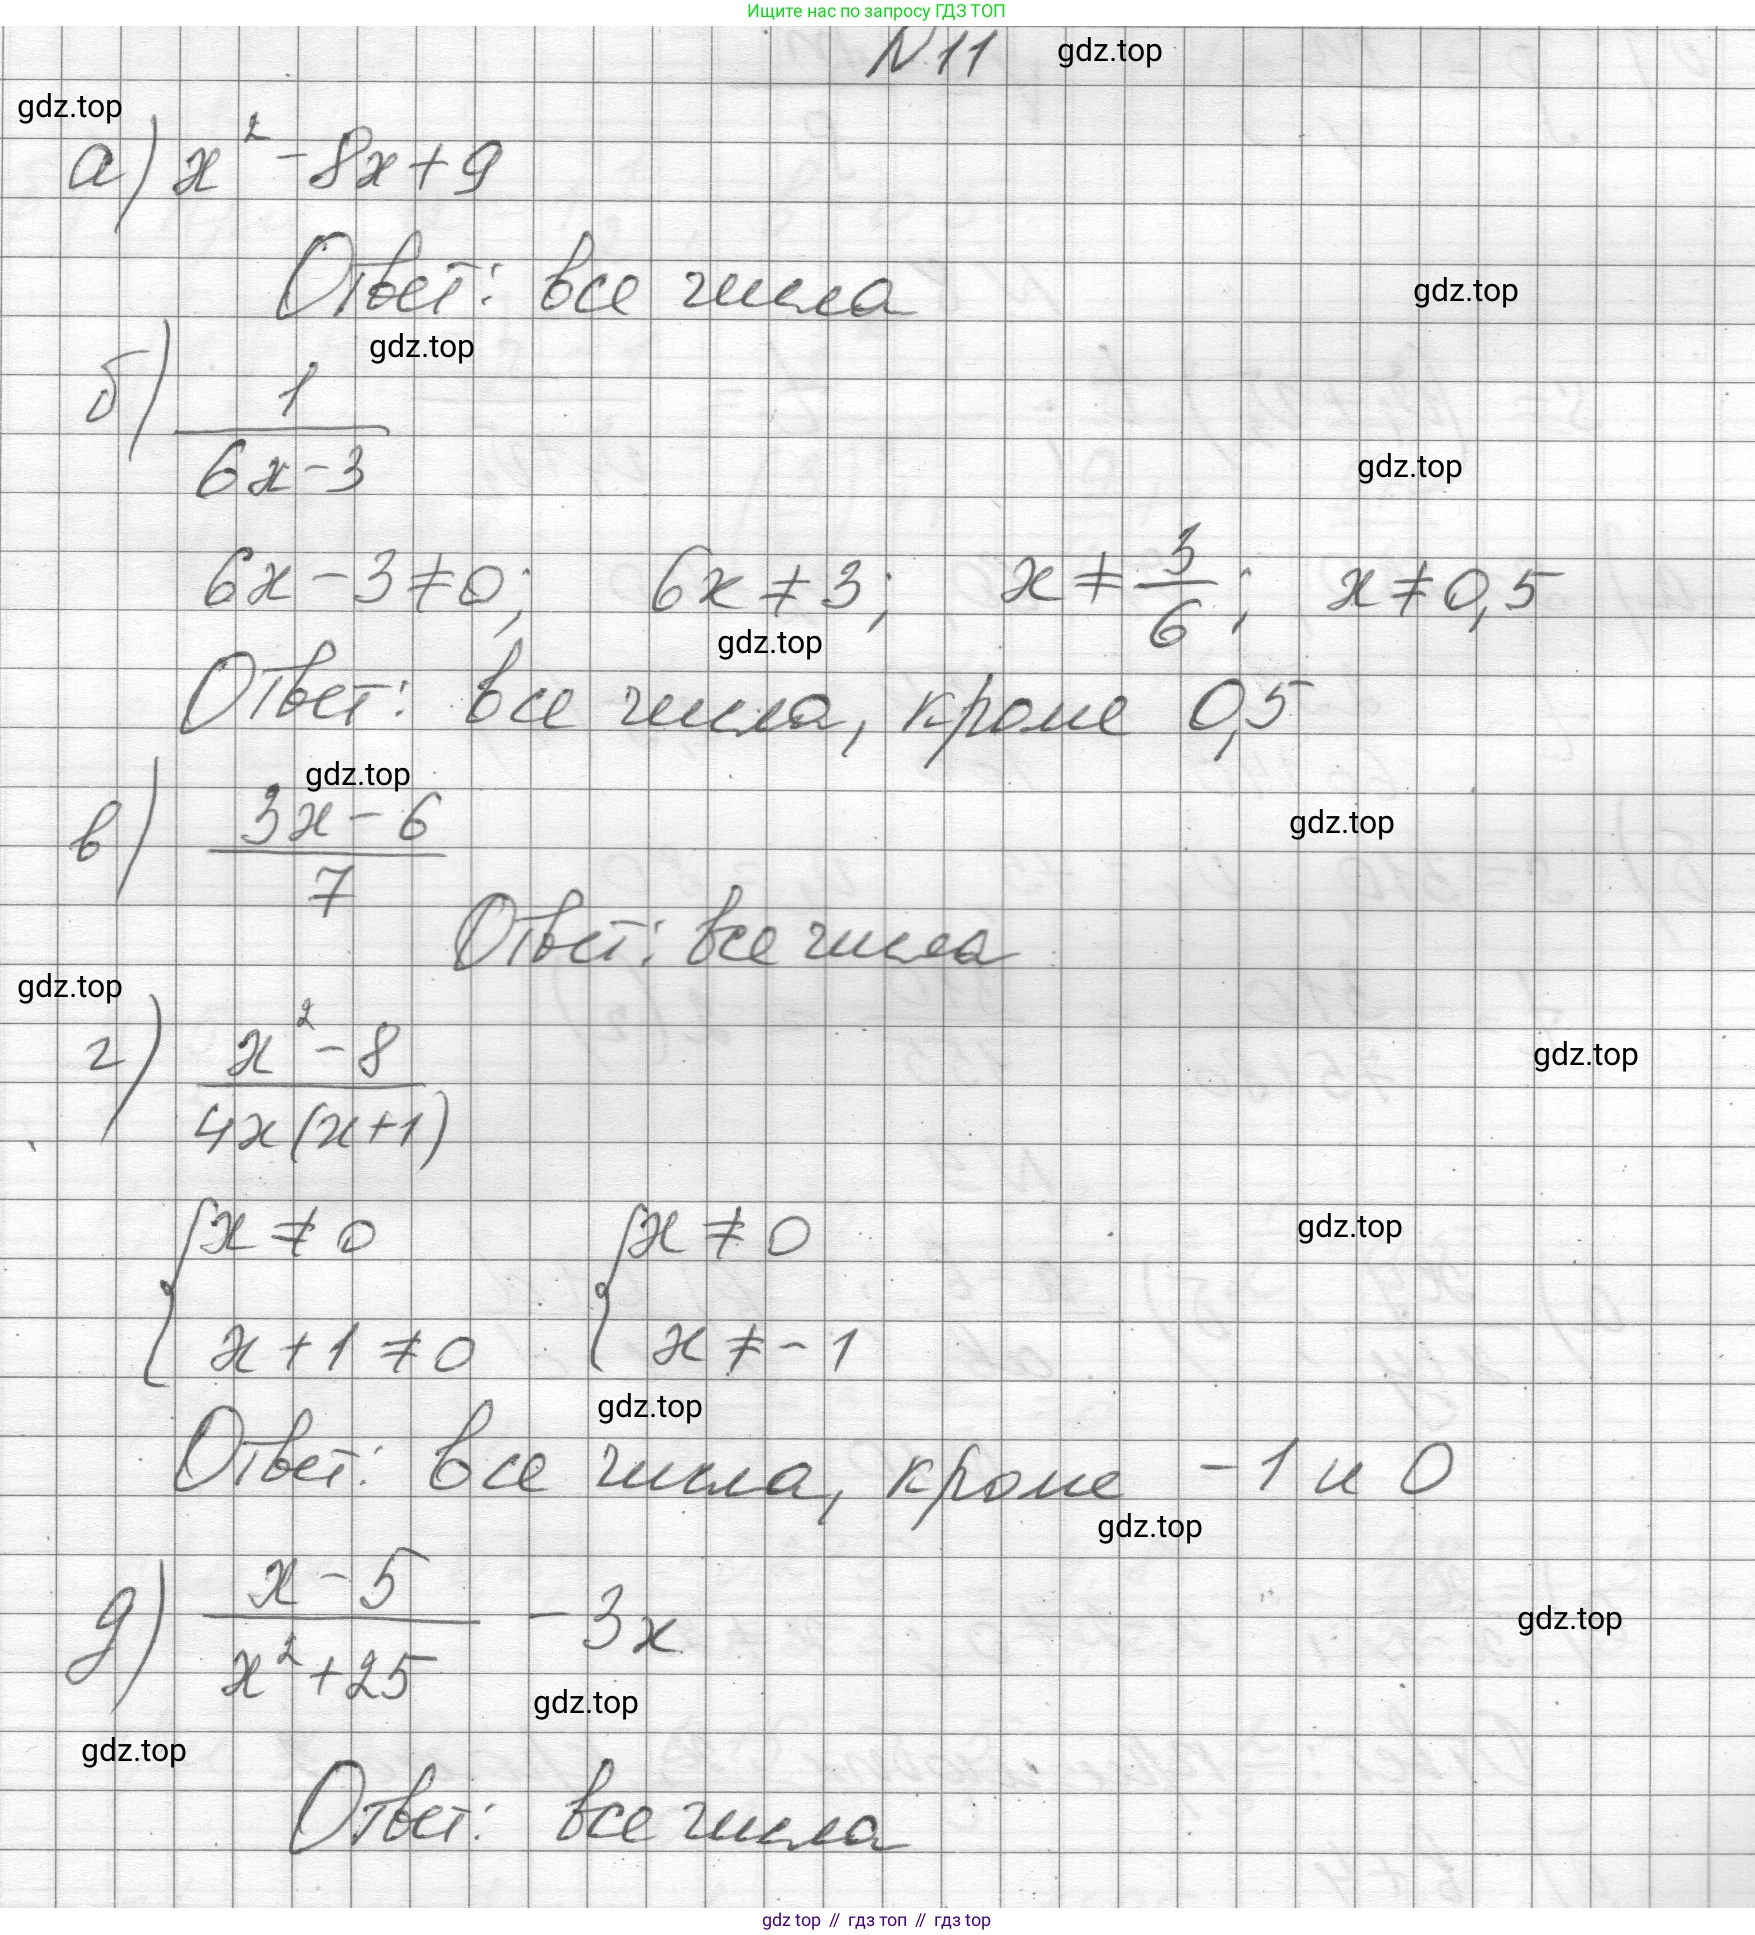 Ищите нас по запросу ГДЗ ТОП
N 11 gdz.top
gdz.top
а) x² - 8x + 9
Ответ: все числа
gdz.top
gdz.top
б) 1
6x - 3
gdz.top
6x - 3 ≠ 0; 6x ≠ 3; x ≠ 3/6; x ≠ 0,5
gdz.top
Ответ: все числа, кроме 0,5
gdz.top
gdz.top
в) 3x - 6
7
Ответ: все числа
gdz.top
г) x² - 8
4x(x+1)
gdz.top
{ x ≠ 0 { x ≠ 0
gdz.top
x + 1 ≠ 0 x ≠ -1
gdz.top
Ответ: все числа, кроме -1 и 0
gdz.top
д) x - 5
x² + 25 - 3x
gdz.top
gdz.top
gdz.top
Ответ: все числа
gdz top // гдз топ // гдз top